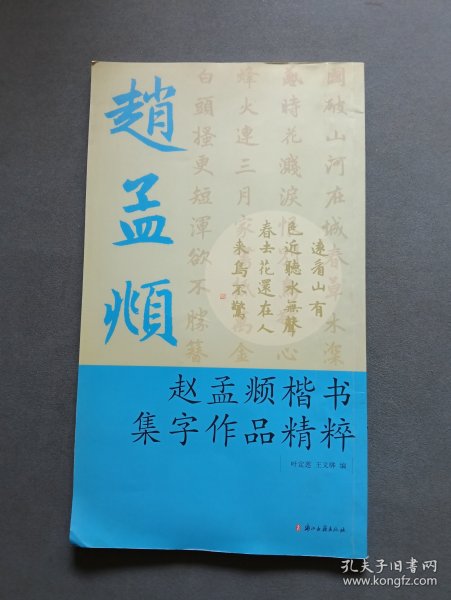 趙孟頫
國破山河在城春草木深
感時花濺淚恨心
烽火連三月家萬金
白頭搔更短渾欲不勝簪
遠看山有
色近聽水無聲
春去花還在人
来鳥不驚
赵孟頫楷书
集字作品精粹
编
浙江古籍出版社
孔夫子旧书网
www.kongfz.com